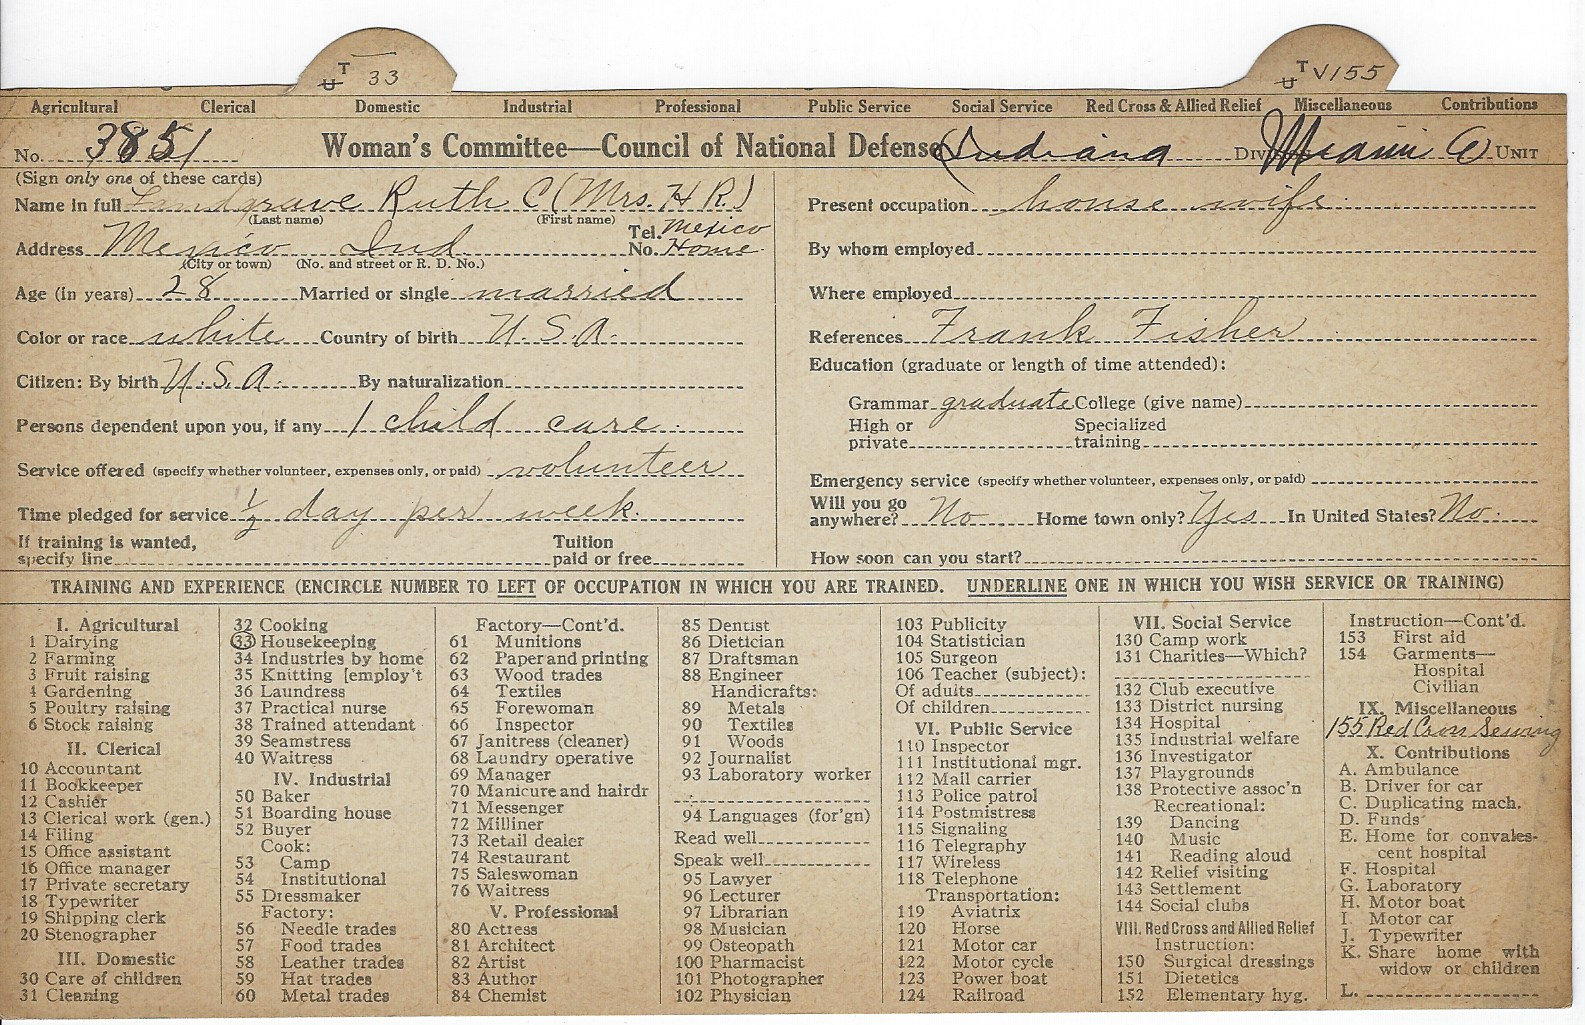 T
U 33
T
U V155
Agricultural Clerical Domestic Industrial Professional Public Service Social Service Red Cross & Allied Relief Miscellaneous Contributions
No. 3851 Woman's Committee—Council of National Defense (Indiana DIVISION Miami Co UNIT
(Sign only one of these cards)
Name in full Landgrave Ruth C (Mrs. H R.)
(Last name) (First name)
Address Mexico Ind. Tel. No. Mexico Home.
(City or town) (No. and street or R. D. No.)
Age (in years) 28 Married or single married
Color or race white Country of birth U.S.A.
Citizen: By birth U.S.A. By naturalization
Persons dependent upon you, if any 1 child care.
Service offered (specify whether volunteer, expenses only, or paid) volunteer
Time pledged for service 1/2 day per week.
If training is wanted, specify line Tuition paid or free
Present occupation house wife
By whom employed
Where employed
References Frank Fisher
Education (graduate or length of time attended):
Grammar graduate College (give name)
High or private Specialized training
Emergency service (specify whether volunteer, expenses only, or paid)
Will you go anywhere? No Home town only? Yes In United States? No.
How soon can you start?
TRAINING AND EXPERIENCE (ENCIRCLE NUMBER TO LEFT OF OCCUPATION IN WHICH YOU ARE TRAINED. UNDERLINE ONE IN WHICH YOU WISH SERVICE OR TRAINING)
I. Agricultural
1 Dairying
2 Farming
3 Fruit raising
4 Gardening
5 Poultry raising
6 Stock raising
II. Clerical
10 Accountant
11 Bookkeeper
12 Cashier
13 Clerical work (gen.)
14 Filing
15 Office assistant
16 Office manager
17 Private secretary
18 Typewriter
19 Shipping clerk
20 Stenographer
III. Domestic
30 Care of children
31 Cleaning
32 Cooking
33 Housekeeping
34 Industries by home
35 Knitting [employ't
36 Laundress
37 Practical nurse
38 Trained attendant
39 Seamstress
40 Waitress
IV. Industrial
50 Baker
51 Boarding house
52 Buyer
Cook:
53 Camp
54 Institutional
55 Dressmaker
Factory:
56 Needle trades
57 Food trades
58 Leather trades
59 Hat trades
60 Metal trades
Factory—Cont'd.
61 Munitions
62 Paper and printing
63 Wood trades
64 Textiles
65 Forewoman
66 Inspector
67 Janitress (cleaner)
68 Laundry operative
69 Manager
70 Manicure and hairdr
71 Messenger
72 Milliner
73 Retail dealer
74 Restaurant
75 Saleswoman
76 Waitress
V. Professional
80 Actress
81 Architect
82 Artist
83 Author
84 Chemist
85 Dentist
86 Dietician
87 Draftsman
88 Engineer
Handicrafts:
89 Metals
90 Textiles
91 Woods
92 Journalist
93 Laboratory worker
94 Languages (for'gn)
Read well
Speak well
95 Lawyer
96 Lecturer
97 Librarian
98 Musician
99 Osteopath
100 Pharmacist
101 Photographer
102 Physician
103 Publicity
104 Statistician
105 Surgeon
106 Teacher (subject):
Of adults
Of children
VI. Public Service
110 Inspector
111 Institutional mgr.
112 Mail carrier
113 Police patrol
114 Postmistress
115 Signaling
116 Telegraphy
117 Wireless
118 Telephone
Transportation:
119 Aviatrix
120 Horse
121 Motor car
122 Motor cycle
123 Power boat
124 Railroad
VII. Social Service
130 Camp work
131 Charities—Which?
132 Club executive
133 District nursing
134 Hospital
135 Industrial welfare
136 Investigator
137 Playgrounds
138 Protective assoc'n
Recreational:
139 Dancing
140 Music
141 Reading aloud
142 Relief visiting
143 Settlement
144 Social clubs
VIII. Red Cross and Allied Relief
Instruction:
150 Surgical dressings
151 Dietetics
152 Elementary hyg.
Instruction—Cont'd.
153 First aid
154 Garments—
Hospital
Civilian
IX. Miscellaneous
155 Red Cross Sewing
X. Contributions
A. Ambulance
B. Driver for car
C. Duplicating mach.
D. Funds
E. Home for convales-
cent hospital
F. Hospital
G. Laboratory
H. Motor boat
I. Motor car
J. Typewriter
K. Share home with
widow or children
L.